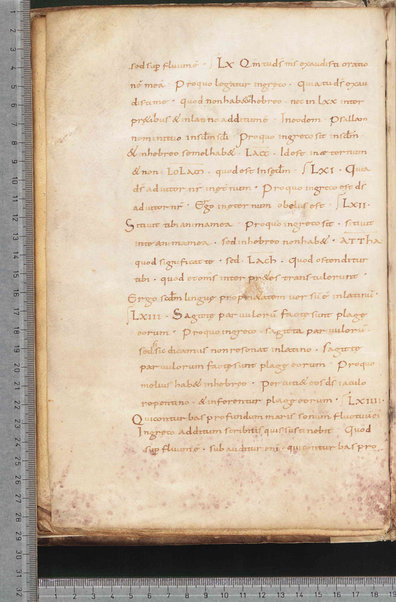 sed sup fluum ē. LX Qm tu ds ms exaudisti oratio
nē mea. Pro quo legitur in greco. Quia tu ds exau
disti me. quod non hab& hebreo. nec in LXX inter
pr&ibus & in latino additum ē. In eodem Psallam
nomini tuo in sclm scli Pro quo in greco sit in sclm
& in hebreo semel hab&. Id ē in aeternum
& non quod est LXI. Quia
ds adiutor nr in eternum. Pro quo in greco est ds
adiutor nr. Ergo in eternum obelus est. LXII
Sitiuit tibi anima mea. Pro quo in greco sit. sitiuit
in te anima mea. sed in hebreo non hab&. ATTHA
quod significat te. sed. LACH. Quod ostenditur
tibi. quod & oms interpr&es transtulerunt.
Ergo scdm lingue propri&atem versū ē in latinū
LXIII. Sagitte paruulorū facte sunt plage
eorum. Pro quo in greco. sagitta paruulorū
sed si sic dicamus non resonat in latino. Sagitte
paruulorum facte sunt plage eorum. Pro quo
melius hab& in hebreo. Percuti& eos ds iaculo
repentino. & inferentur plage eorum. LXIIII
Qui conturbas profundum maris sonum fluctuū ei
In greco additum scribitis quis sustinebit. Quod
sup fluum ē. sub auditur eni. qui conturbas pro